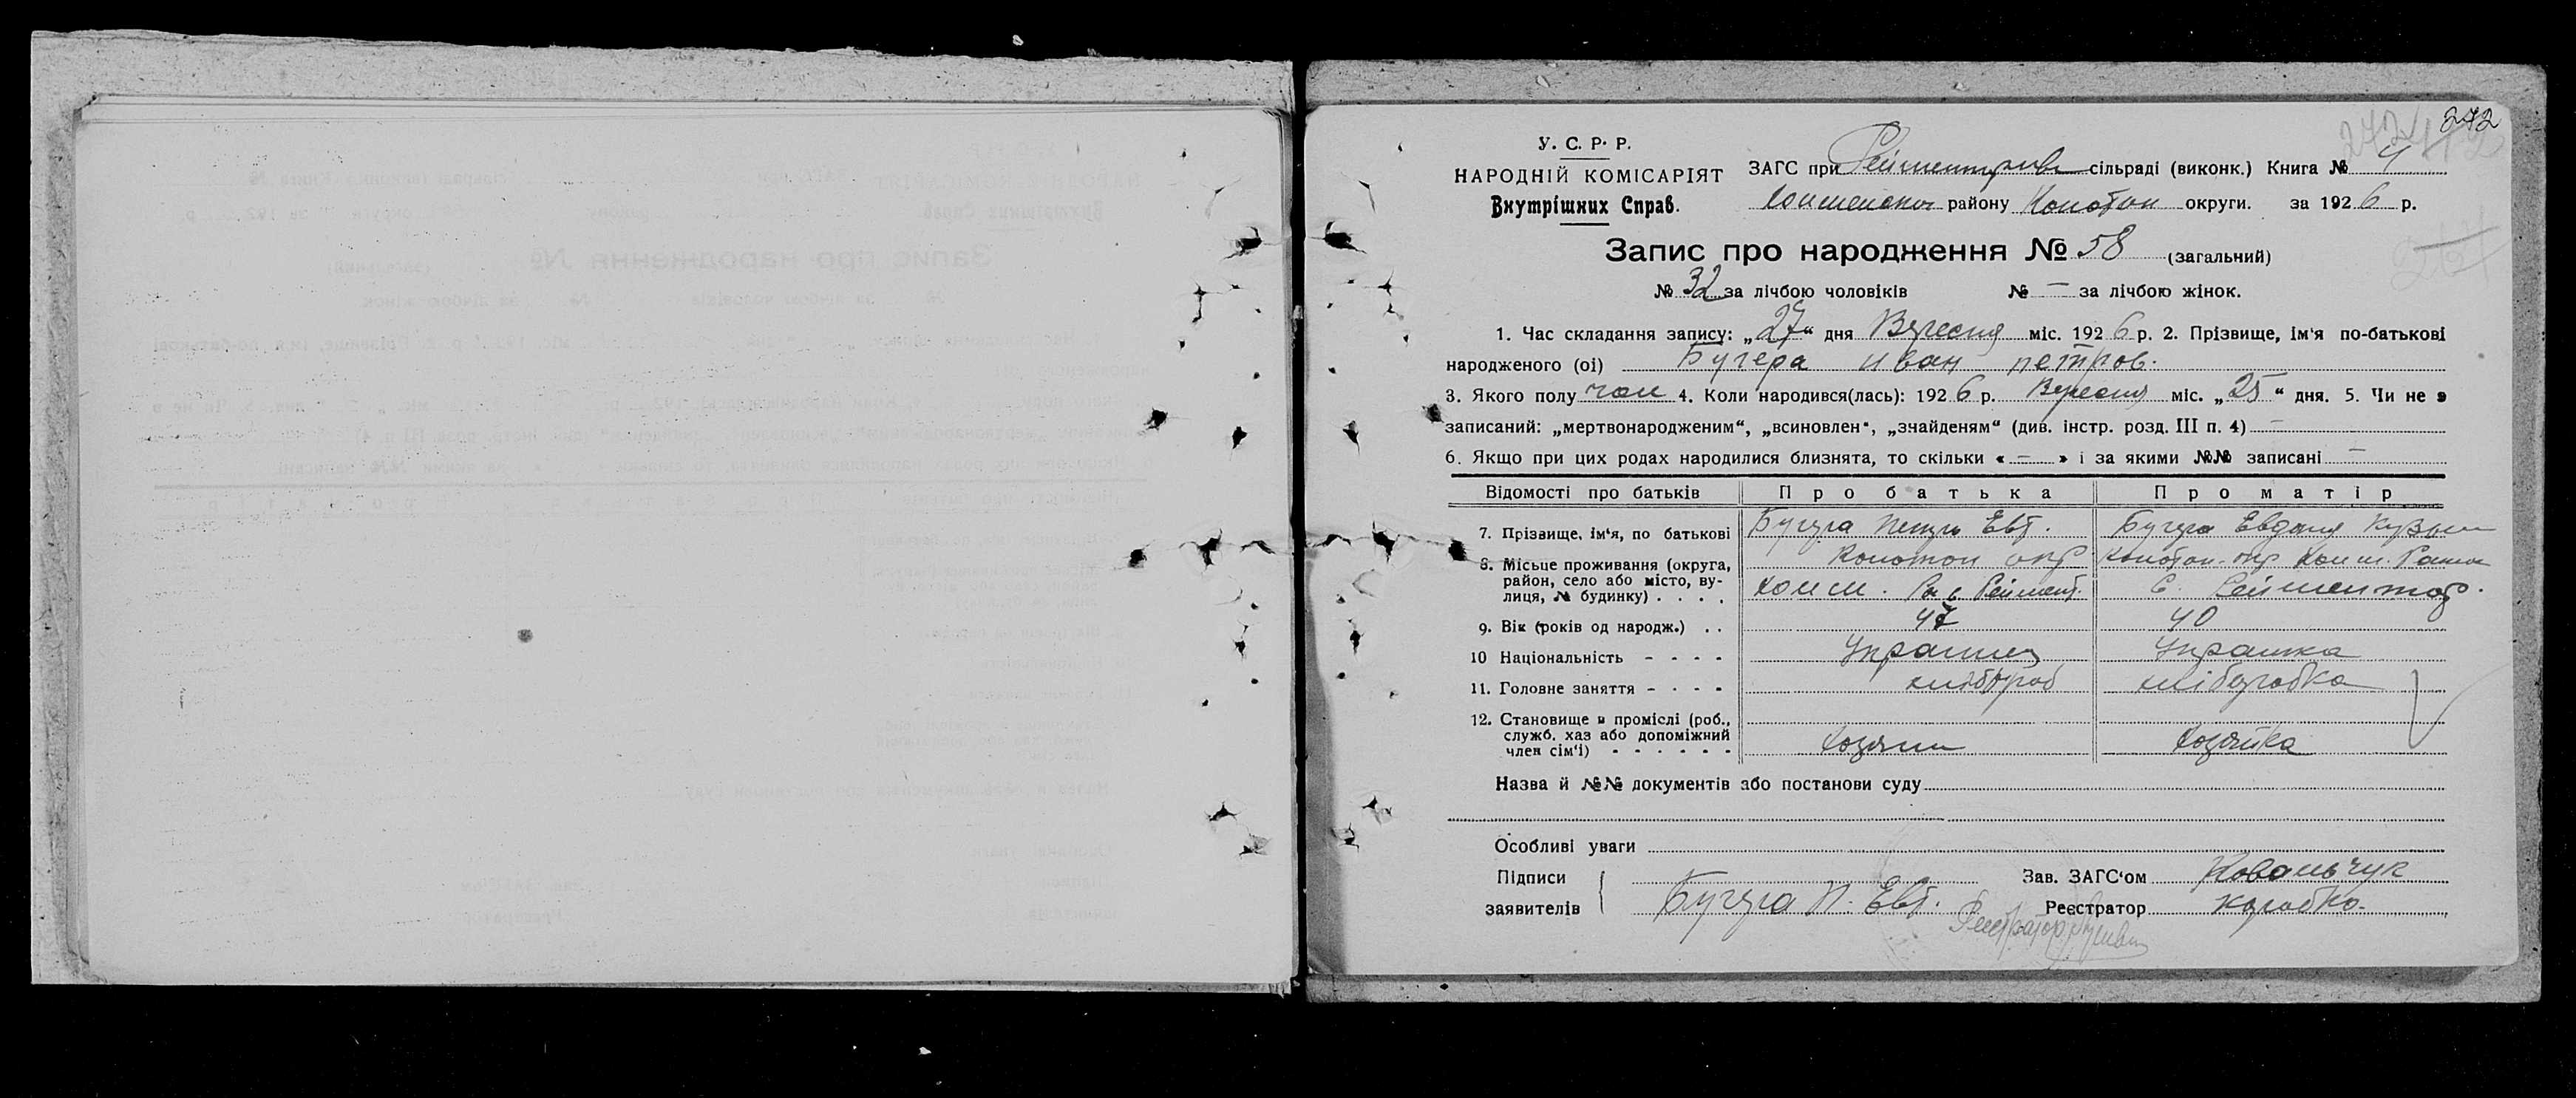 272
У. С. Р. Р.
НАРОДНІЙ КОМІСАРІЯТ
Внутрішних Справ.
ЗАГС при сільраді (виконк.) Книга № 4
району Конотоп округи. за 1926 р.
Запис про народження № 58 (загальний)
№ 32 за лічбою чоловіків № — за лічбою жінок.
1. Час складання запису: „27“ дня Вересня міс. 1926 р. 2. Прізвище, ім‘я по-батькові
народженого (ої) Бугера Иван петров.
3. Якого полу чол 4. Коли народився(лась): 1926 р. Вересня міс. „25“ дня. 5. Чи не э
записаний: „мертвонародженим“, „всиновлен“, „знайденям“ (див. інстр. розд. III п. 4) —
6. Якщо при цих родах народилися близнята, то скільки « — » і за якими №№ записані —
Відомості про батьків Про батька Про матір
7. Прізвище, ім‘я, по батькові Бугера Петро Евт. Бугера Кузьм
8. Місьце проживання (округа, Конотоп окр Конотоп. окр
район, село або місто, ву-
лиця, № будинку) . . . . с Реймент. С. Рейментар.
9. Вік (років од народж.) . . 40
10 Національність - - - - Украинец Украинка
11. Головне заняття - - - - хлібороб хліборобка
12. Становище в проміслі (роб.,
служб. хаз або допоміжний
член сім‘і) - - - - - - Хозяин Хозяйка
Назва й №№ документів або постанови суду
Особливі уваги
Підписи Зав. ЗАГС‘ом Ковальчук
заявителів Бугера П. Евт. Реєстратор Коробко.
Реєстратор